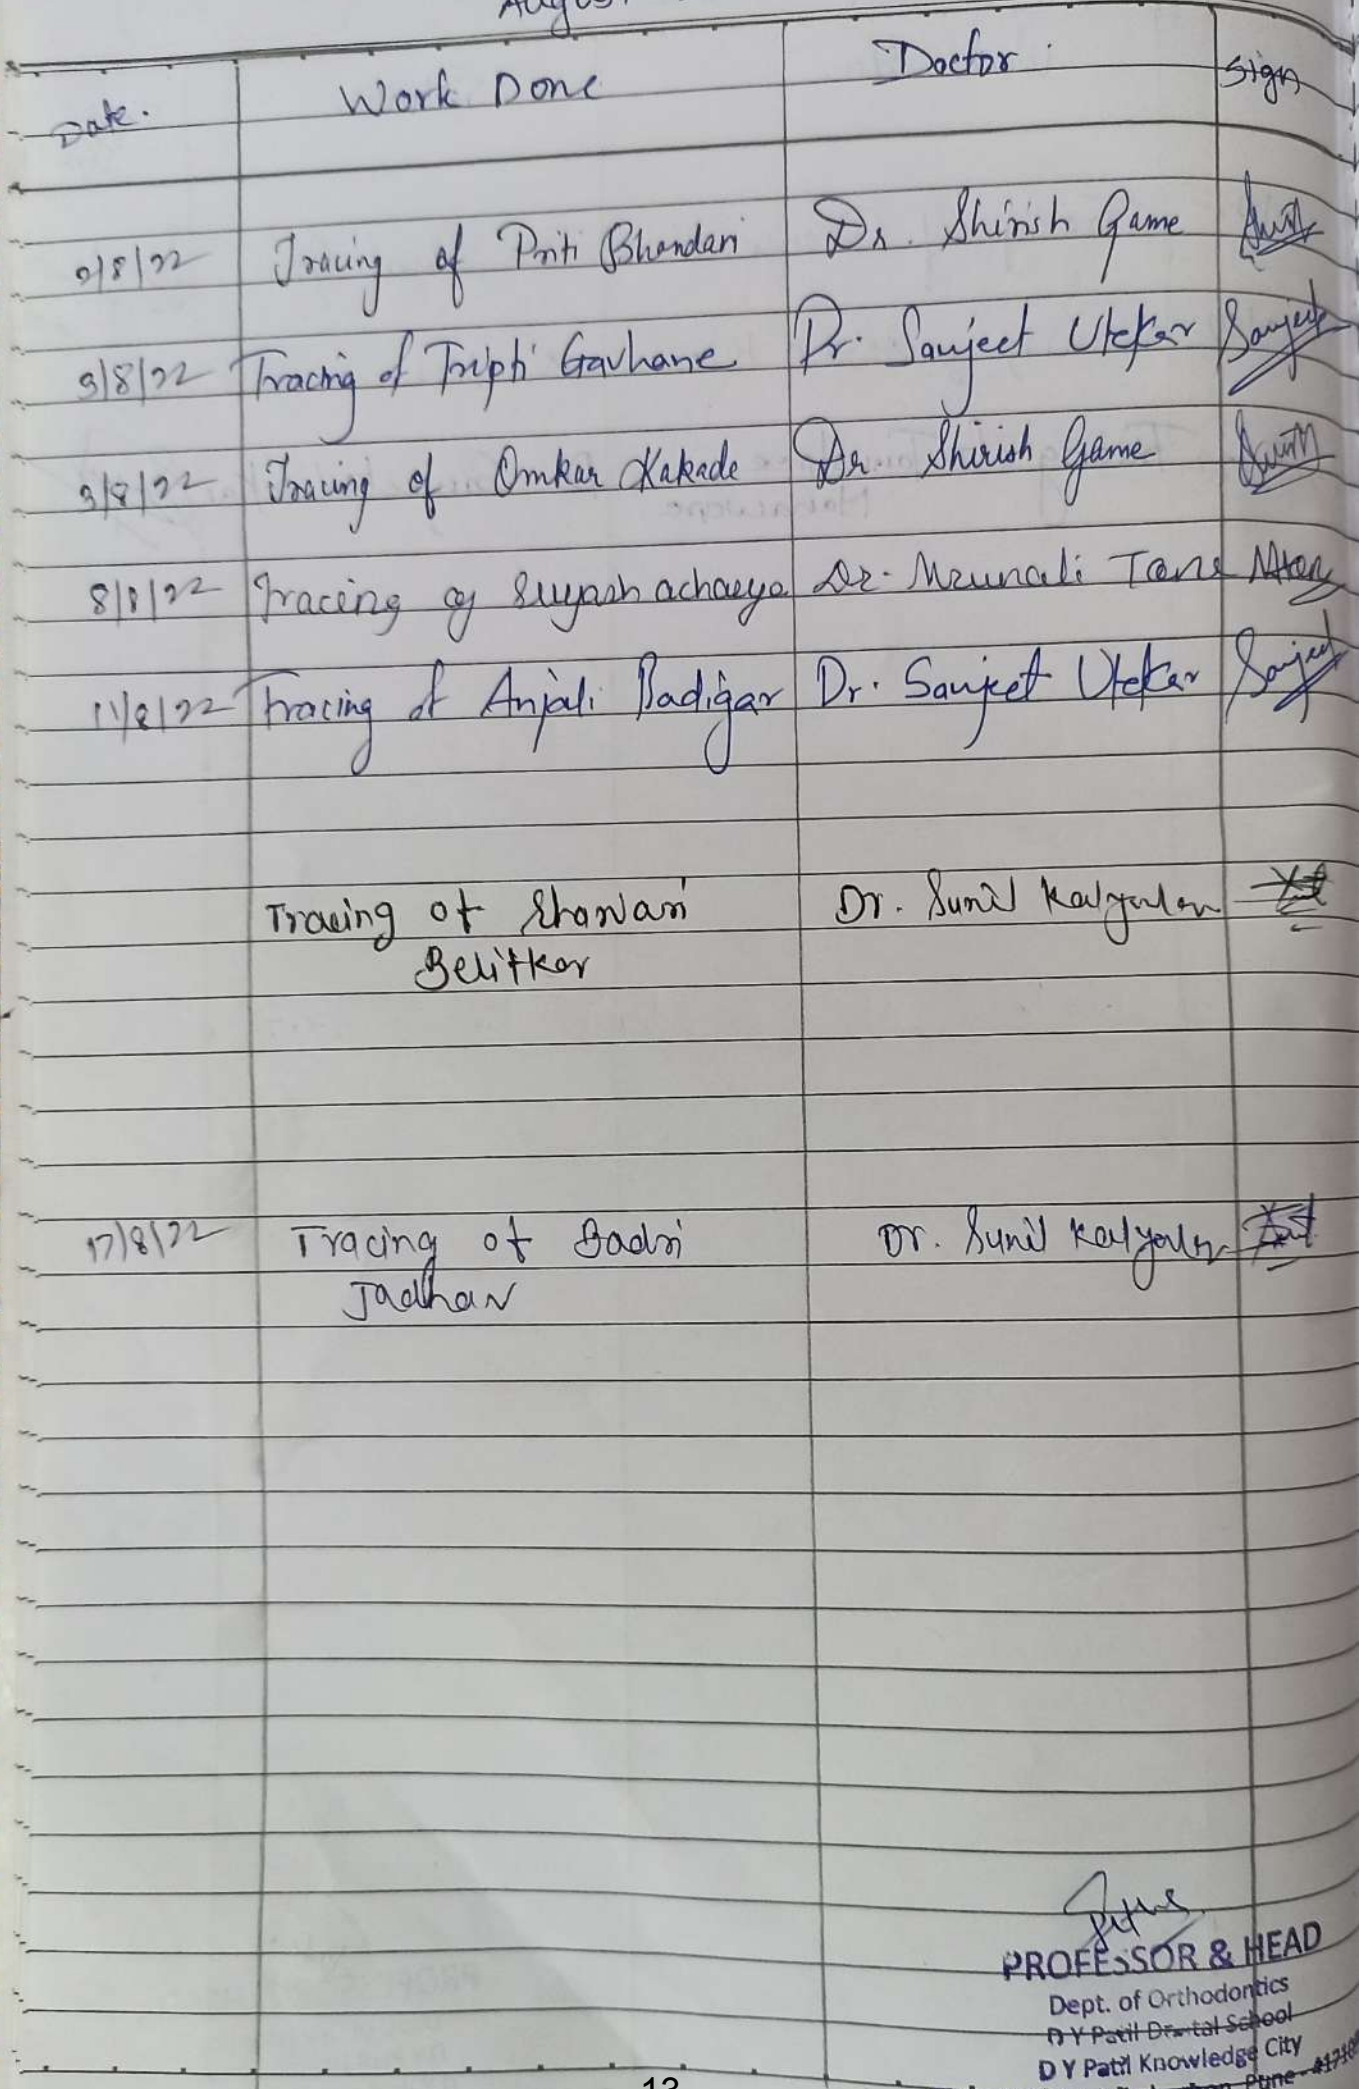 August
Date. Work Done Doctor Sign
2/8/22 Tracing of Priti Bhandari Dr. Shirish Game
3/8/22 Tracing of Tripti Gavhane Dr. Sanjeet Utekar Sanjeet
3/8/22 Tracing of Omkar Kakade Dr. Shirish Game
8/8/22 Tracing of Suyash acharya Dr. Mrunali Tans
11/8/22 Tracing of Anjali Badigar Dr. Sanjeet Utekar Sanjeet
Tracing of Dr. Sunil
Belitkar
17/8/22 Tracing of Badri Dr. Sunil
Jadhav
PROFESSOR & HEAD
Dept. of Orthodontics
D Y Patil Dental School
D Y Patil Knowledge City
Pune
13